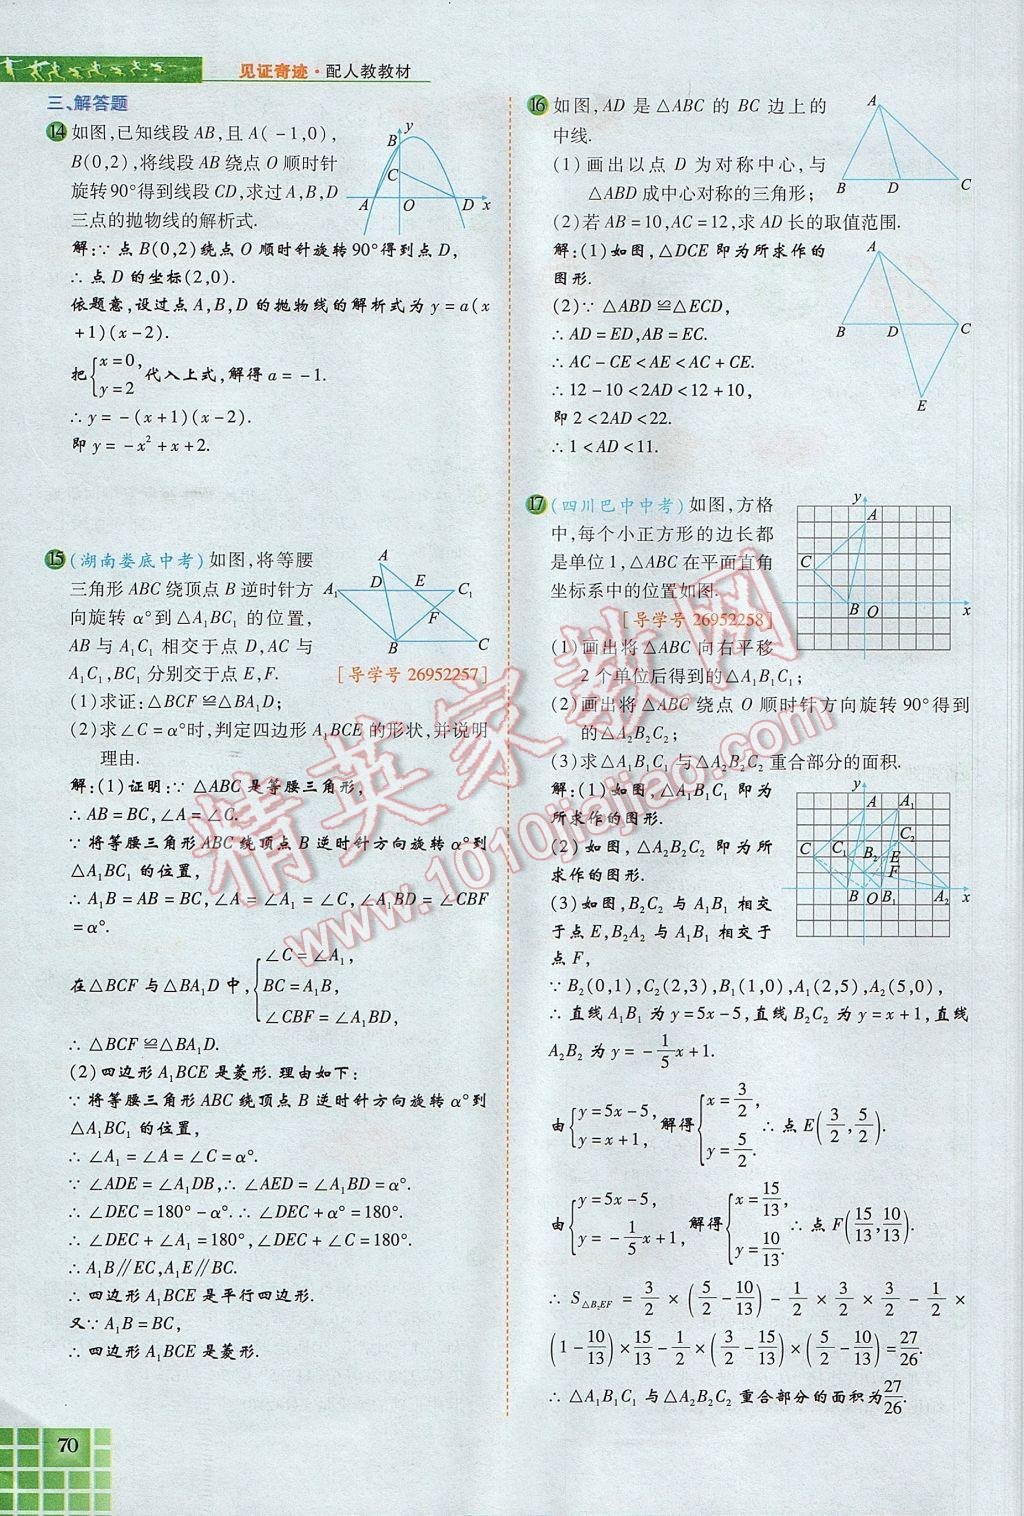 见证奇迹·配人教教材
三、解答题
14 如图,已知线段 AB,且 A(-1,0),
B(0,2),将线段 AB 绕点 O 顺时针
旋转90°得到线段CD,求过A,B,D
三点的抛物线的解析式.
解:∵点B(0,2)绕点O顺时针旋转90°得到点D,
∴点D的坐标(2,0).
依题意,设过点A,B,D的抛物线的解析式为y=a(x
+1)(x-2).
把{x=0, y=2 代入上式,解得a=-1.
∴y=-(x+1)(x-2).
即y=-x²+x+2.
y
B
C
A O D x
15 (湖南娄底中考)如图,将等腰
三角形ABC绕顶点B逆时针方
向旋转 α°到△A₁BC₁ 的位置,
AB与A₁C₁相交于点D,AC与
A₁C₁,BC₁分别交于点E,F.
[导学号 26952257]
(1)求证:△BCF≌△BA₁D;
(2)求∠C=α°时,判定四边形A₁BCE的形状,并说明
理由.
A
A₁ D E C₁
F
B C
解:(1)证明:∵△ABC是等腰三角形,
∴AB=BC,∠A=∠C.
∵将等腰三角形ABC绕顶点B逆时针方向旋转α°到
△A₁BC₁的位置,
∴A₁B=AB=BC,∠A=∠A₁=∠C,∠A₁BD=∠CBF
=α°.
在△BCF与△BA₁D中,{∠C=∠A₁, BC=A₁B, ∠CBF=∠A₁BD,
∴△BCF≌△BA₁D.
(2)四边形A₁BCE是菱形.理由如下:
∵将等腰三角形ABC绕顶点B逆时针方向旋转α°到
△A₁BC₁的位置,
∴∠A₁=∠A=∠C=α°.
∵∠ADE=∠A₁DB,∴∠AED=∠A₁BD=α°.
∴∠DEC=180°-α°.∴∠DEC+α°=180°.
∴∠DEC+∠A₁=180°,∠DEC+∠C=180°.
∴A₁B∥EC,A₁E∥BC.
∴四边形A₁BCE是平行四边形.
又∵A₁B=BC,
∴四边形A₁BCE是菱形.
70
16 如图,AD是△ABC的BC边上的
中线.
(1)画出以点D为对称中心,与
△ABD成中心对称的三角形;
(2)若AB=10,AC=12,求AD长的取值范围.
A
B D C
解:(1)如图,△DCE即为所求作的
图形.
(2)∵△ABD≌△ECD,
∴AD=ED,AB=EC.
∴AC-CE<AE<AC+CE.
∴12-10<2AD<12+10,
即2<2AD<22.
∴1<AD<11.
A
B D C
E
17 (四川巴中中考)如图,方格
中,每个小正方形的边长都
是单位1,△ABC在平面直角
坐标系中的位置如图.
[导学号 26952258]
(1)画出将△ABC向右平移
2个单位后得到的△A₁B₁C₁;
(2)画出将△ABC绕点O顺时针方向旋转90°得到
的△A₂B₂C₂;
(3)求△A₁B₁C₁与△A₂B₂C₂重合部分的面积.
y
A
C
B O x
解:(1)如图,△A₁B₁C₁即为
所求作的图形.
(2)如图,△A₂B₂C₂即为所
求作的图形.
(3)如图,B₂C₂与A₁B₁相交
于点E,B₂A₂与A₁B₁相交于
点F,
y
A A₁
C₂
C C₁ B₂ E
F
B O B₁ A₂ x
∵B₂(0,1),C₂(2,3),B₁(1,0),A₁(2,5),A₂(5,0),
∴直线A₁B₁为y=5x-5,直线B₂C₂为y=x+1,直线
A₂B₂为y=-1/5x+1.
由{y=5x-5, y=x+1, 解得{x=3/2, y=5/2. ∴点E(3/2,5/2).
由{y=5x-5, y=-1/5x+1, 解得{x=15/13, y=10/13. ∴点F(15/13,10/13).
∴S△B₂EF=3/2×(5/2-10/13)-1/2×3/2×3/2-1/2×
(1-10/13)×15/13-1/2×(3/2-15/13)×(5/2-10/13)=27/26.
∴△A₁B₁C₁与△A₂B₂C₂重合部分的面积为27/26.
精英家教网
www.1010jiajiao.com